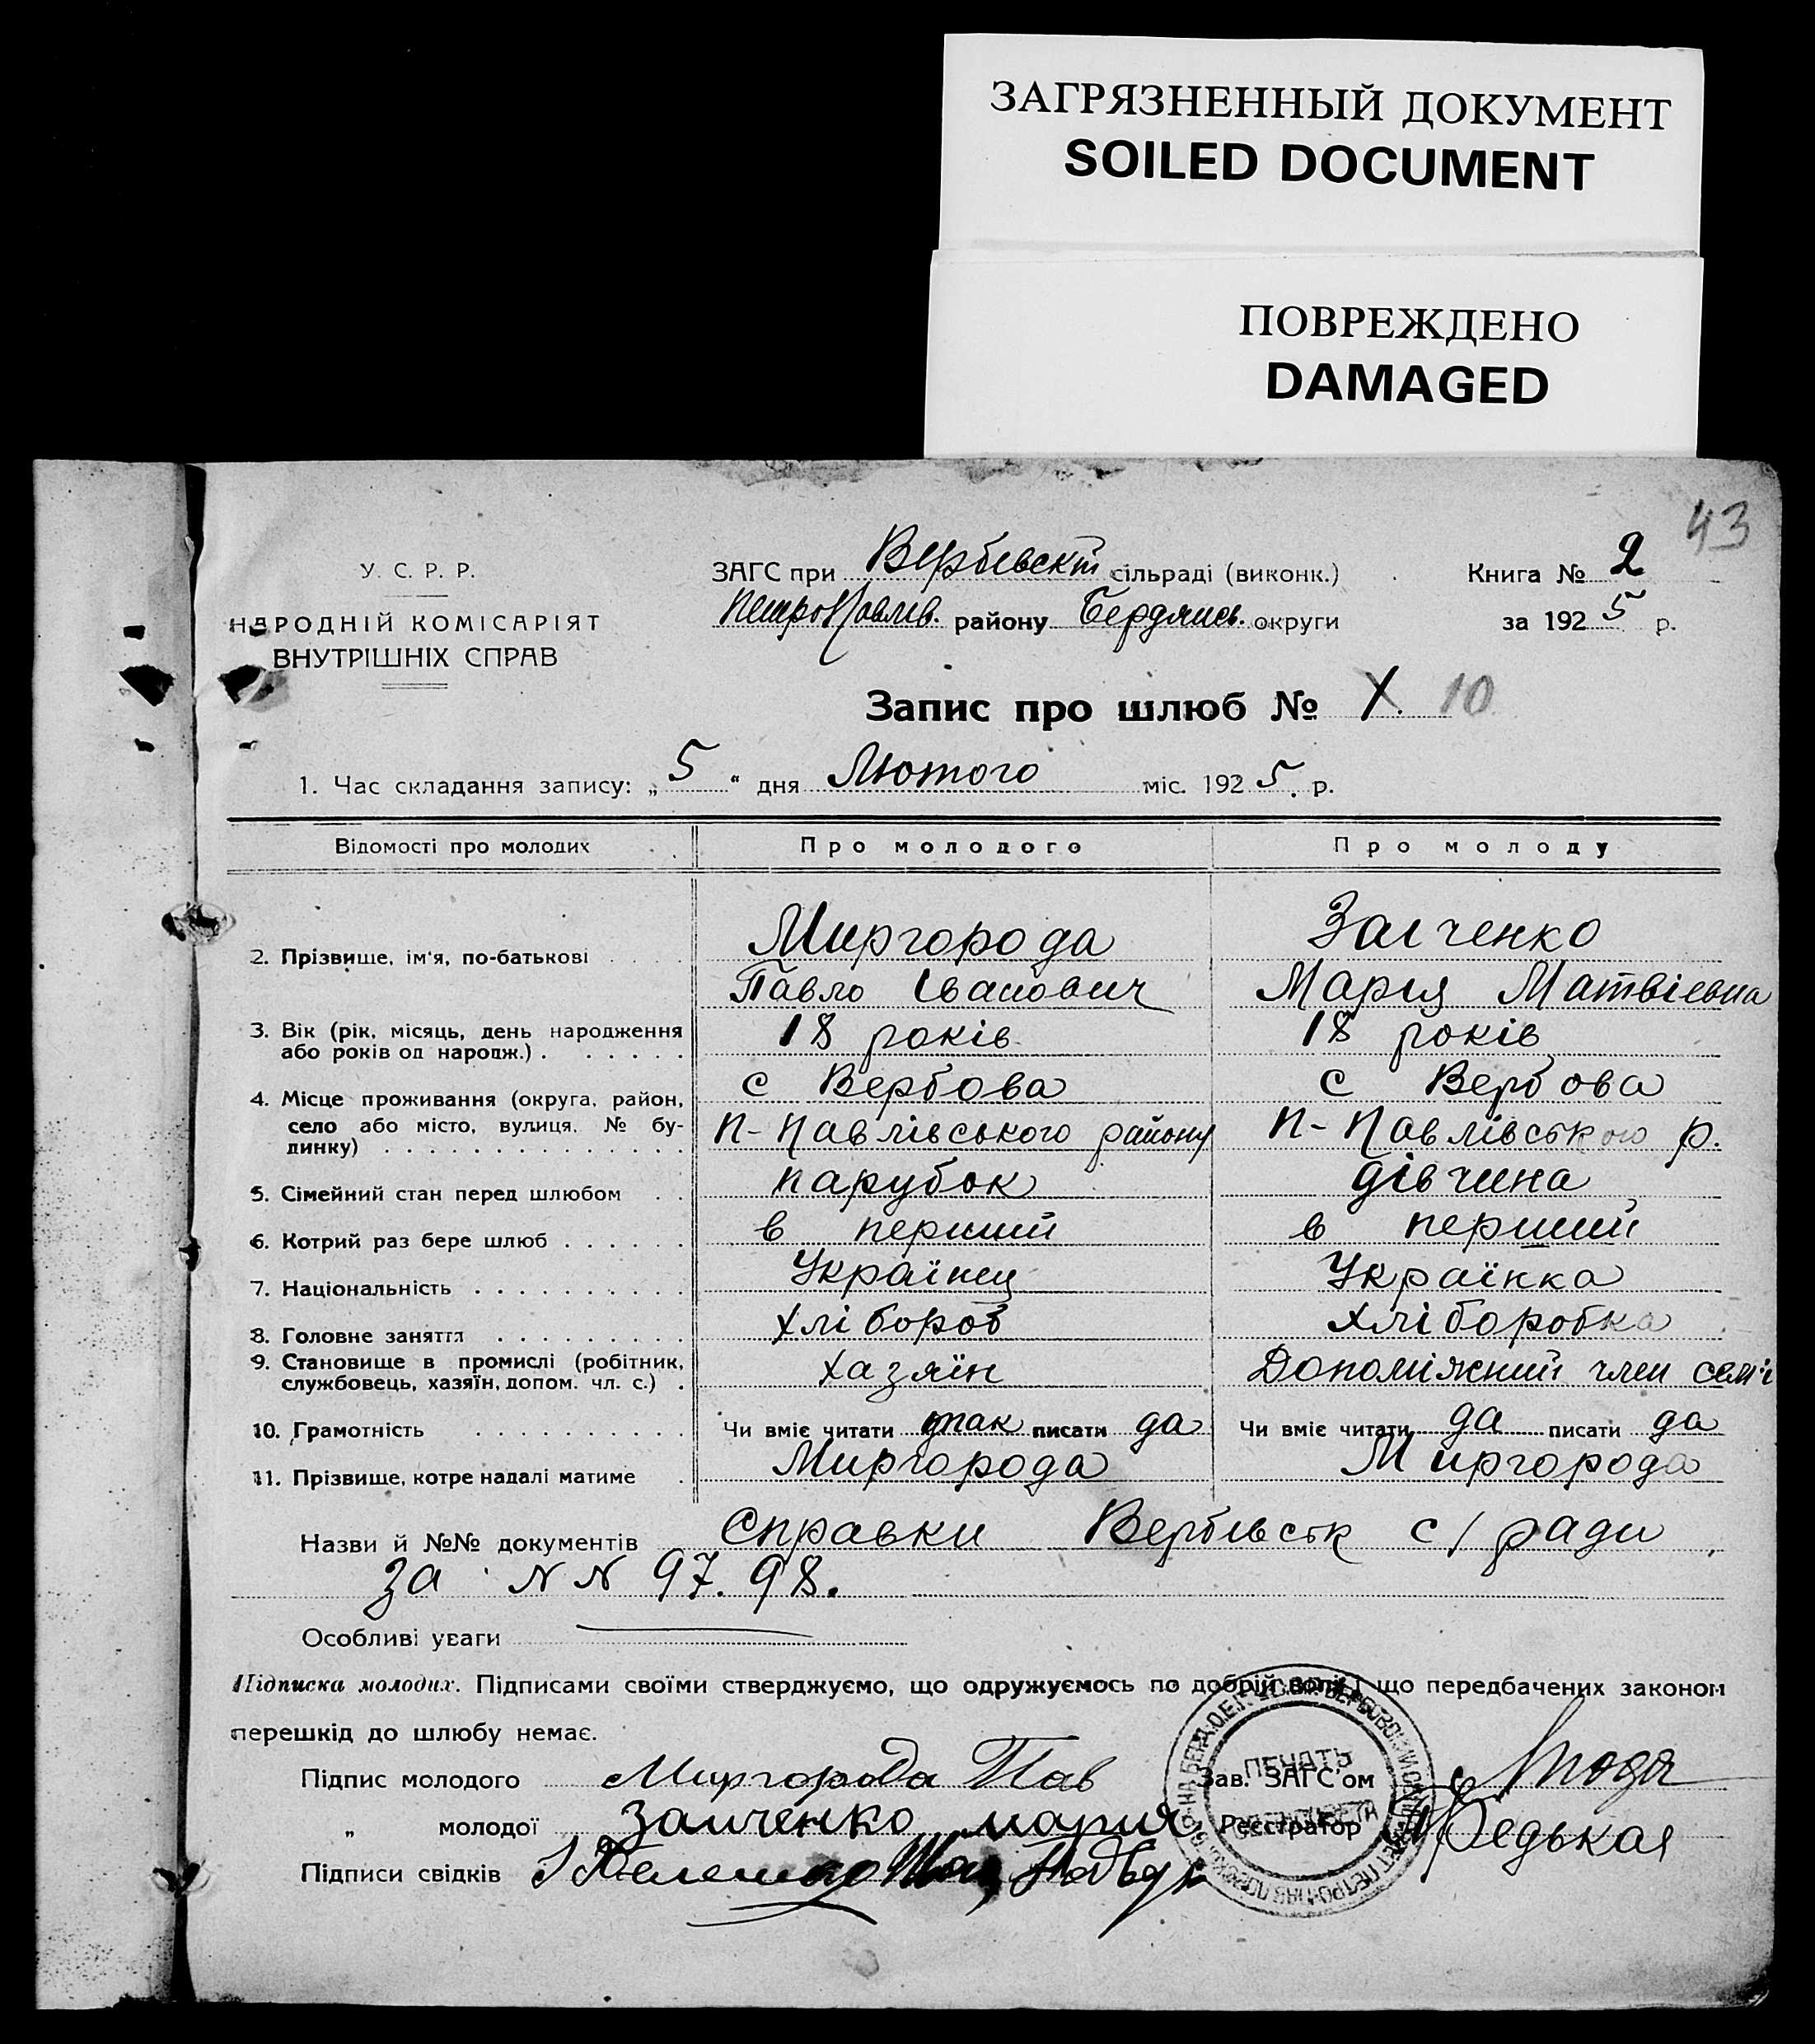 ЗАГРЯЗНЕННЫЙ ДОКУМЕНТ
SOILED DOCUMENT
ПОВРЕЖДЕНО
DAMAGED
43
У. С. Р. Р.
НАРОДНІЙ КОМІСАРІЯТ
ВНУТРІШНІХ СПРАВ
ЗАГС при Вербівскій сільраді (виконк.)
ПетроПавлів. району Бердянсь. округи
Книга № 2
за 1925 р.
Запис про шлюб № 10
1. Час складання запису: „5“ дня Лютого міс. 1925. р.
Відомості про молодих Про молодого Про молоду
2. Прізвище, ім'я, по-батькові . . . . Миргорода Заіченко
Павло Іванович Марія Матвіевна
3. Вік (рік, місяць, день народження 18 років 18 років
або років од народж.) . . . . . .
4. Місце проживання (округа, район, с Вербова с Вербова
село або місто, вулиця, № бу- П-Павлівського району П-Павлівського р.
динку) . . . . . . . . . . . . . .
5. Сімейний стан перед шлюбом . . парубок дівчина
6. Котрий раз бере шлюб . . . . . . в перший в перший
7. Національність . . . . . . . . . . Українец Українка
8. Головне заняття . . . . . . . . . хлібороб хліборобка
9. Становище в промислі (робітник, хазяїн Допоміжний член семʼі
службовець, хазяїн, допом. чл. с.) .
10. Грамотність . . . . . . . . . . Чи вміє читати так писати да Чи вміє читати да писати да
11. Прізвище, котре надалі матиме . Миргорода Миргорода
Назви й №№ документів Справки Вербівськ с/ради
за NN 97. 98.
Особливі уваги
Підписка молодих. Підписами своїми стверджуємо, що одружуємось по добрій волі і що передбачених законом
перешкід до шлюбу немає.
Підпис молодого Миргорода Пав Зав. ЗАГС'ом
„ молодої Заиченко мария Реєстратор Федькая
Підписи свідків
ПЕЧАТЬ